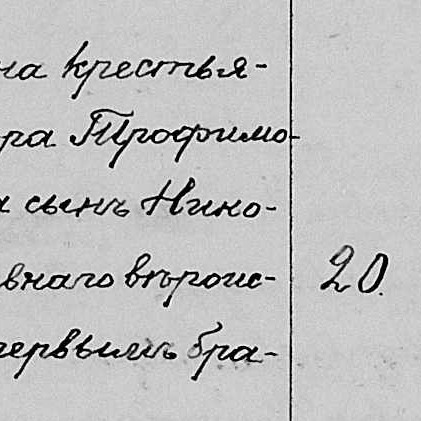 на крестья-
ра Трофимо-
а сынъ Нико-
внаго вѣроис-
первымъ бра-
20.